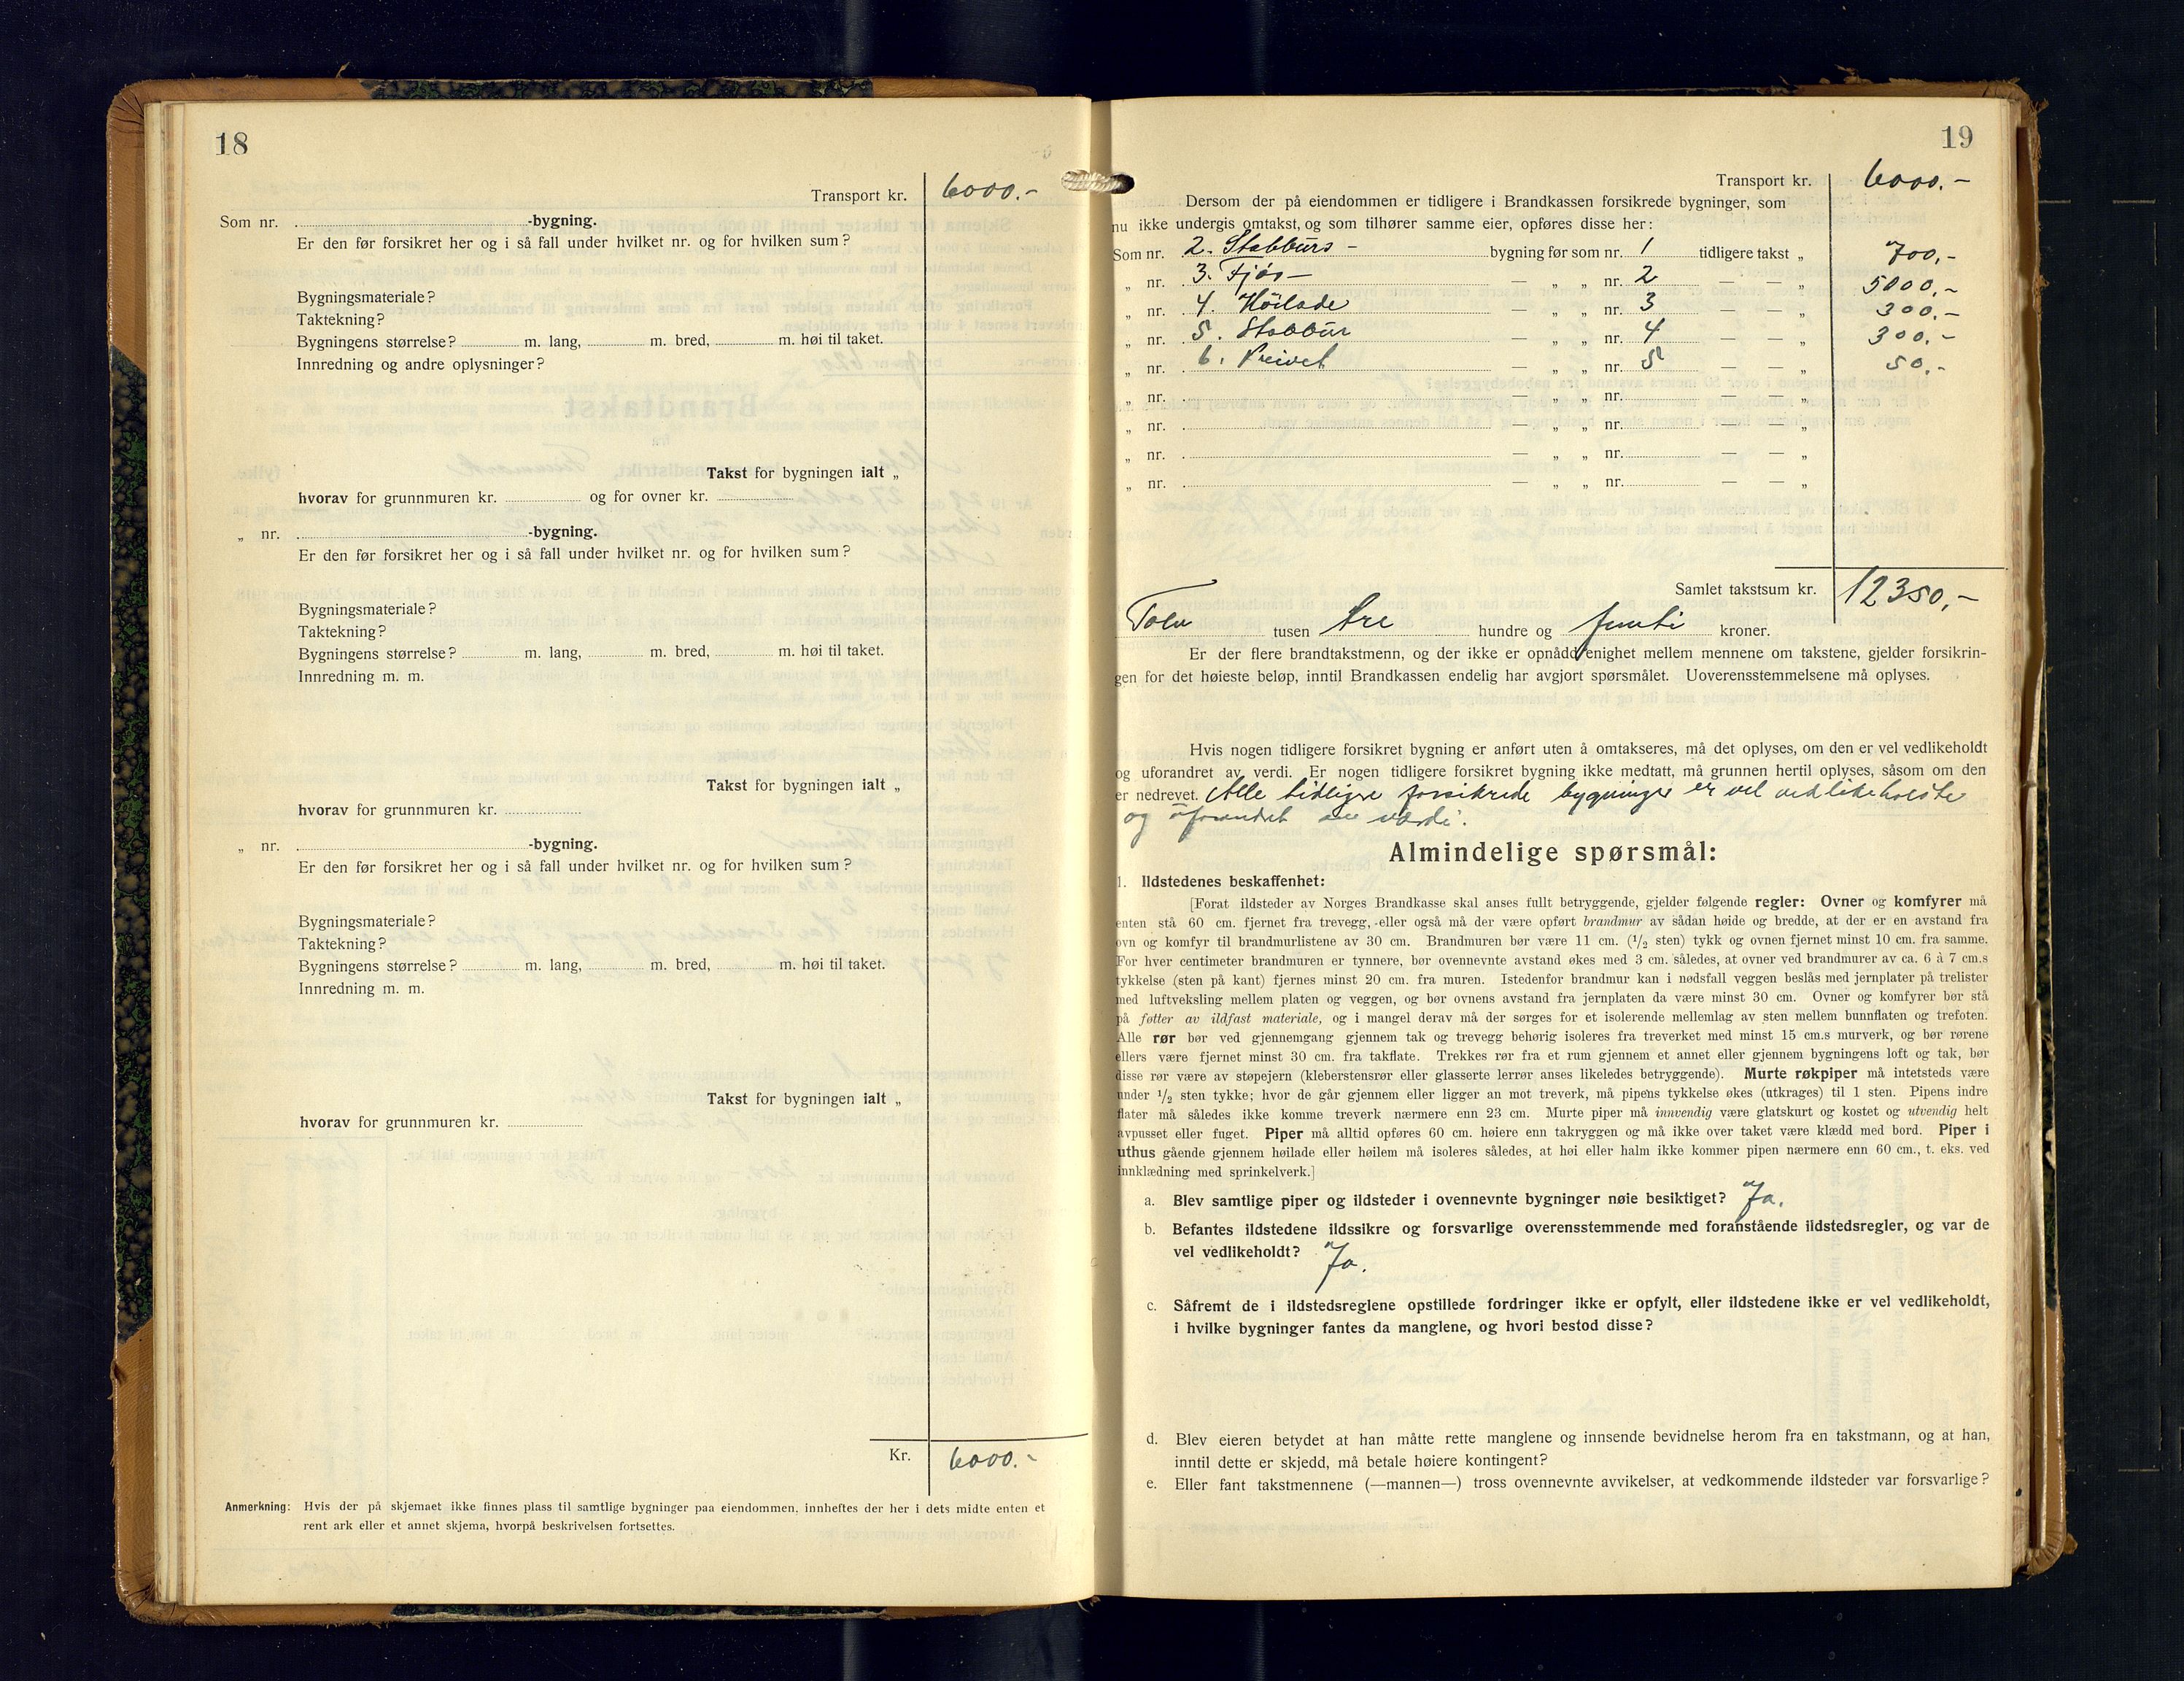 18
Transport kr. 6000.-
Som nr. -bygning.
Er den før forsikret her og i så fall under hvilket nr. og for hvilken sum?
Bygningsmateriale?
Taktekning?
Bygningens størrelse? m. lang, m. bred, m. høi til taket.
Innredning og andre oplysninger?
Takst for bygningen ialt „
hvorav for grunnmuren kr. og for ovner kr.
„ nr. -bygning.
Er den før forsikret her og i så fall under hvilket nr. og for hvilken sum?
Bygningsmateriale?
Taktekning?
Bygningens størrelse? m. lang, m. bred, m. høi til taket.
Innredning m. m.
Takst for bygningen ialt „
hvorav for grunnmuren kr.
„ nr. -bygning.
Er den før forsikret her og i så fall under hvilket nr. og for hvilken sum?
Bygningsmateriale?
Taktekning?
Bygningens størrelse? m. lang, m. bred, m. høi til taket.
Innredning m. m.
Takst for bygningen ialt „
hvorav for grunnmuren kr.
Kr. 6000.-
Anmerkning: Hvis der på skjemaet ikke finnes plass til samtlige bygninger paa eiendommen, innheftes der her i dets midte enten et
rent ark eller et annet skjema, hvorpå beskrivelsen fortsettes.
19
Transport kr. 6000.-
Dersom der på eiendommen er tidligere i Brandkassen forsikrede bygninger, som
nu ikke undergis omtakst, og som tilhører samme eier, opføres disse her:
Som nr. 2. Stabburs - bygning før som nr. 1 tidligere takst „ 700,-
„ nr. 3. Fjøs - — „ „ nr. 2 — — „ 5000,-
„ nr. 4. Höilade — „ „ nr. 3 — — „ 300,-
„ nr. 5. Stabbur — „ „ nr. 4 — — „ 300,-
„ nr. 6. — „ „ nr. 5 — — „ 50,-
„ nr. — „ „ nr. — — „
„ nr. — „ „ nr. — — „
„ nr. — „ „ nr. — — „
„ nr. — „ „ nr. — — „
Samlet takstsum kr. 12350,-
Tolv tusen tre hundre og femti kroner.
Er der flere brandtakstmenn, og der ikke er opnådd enighet mellem mennene om takstene, gjelder forsikrin-
gen for det høieste beløp, inntil Brandkassen endelig har avgjort spørsmålet. Uoverensstemmelsene må oplyses.
Hvis nogen tidligere forsikret bygning er anført uten å omtakseres, må det oplyses, om den er vel vedlikeholdt
og uforandret av verdi. Er nogen tidligere forsikret bygning ikke medtatt, må grunnen hertil oplyses, såsom om den
er nedrevet. Alle tidligre forsikrede bygninger er vel vedlikeholdte
og uforandret av værdi.
Almindelige spørsmål:
1. Ildstedenes beskaffenhet:
[Forat ildsteder av Norges Brandkasse skal anses fullt betryggende, gjelder følgende regler: Ovner og komfyrer må
enten stå 60 cm. fjernet fra trevegg, eller også må der være opført brandmur av sådan høide og bredde, at der er en avstand fra
ovn og komfyr til brandmurlistene av 30 cm. Brandmuren bør være 11 cm. (1/2 sten) tykk og ovnen fjernet minst 10 cm. fra samme.
For hver centimeter brandmuren er tynnere, bør ovennevnte avstand økes med 3 cm. således, at ovner ved brandmurer av ca. 6 à 7 cm.s
tykkelse (sten på kant) fjernes minst 20 cm. fra muren. Istedenfor brandmur kan i nødsfall veggen beslås med jernplater på trelister
med luftveksling mellem platen og veggen, og bør ovnens avstand fra jernplaten da være minst 30 cm. Ovner og komfyrer bør stå
på føtter av ildfast materiale, og i mangel derav må der sørges for et isolerende mellemlag av sten mellem bunnflaten og trefoten.
Alle rør bør ved gjennemgang gjennem tak og trevegg behørig isoleres fra treverket med minst 15 cm.s murverk, og bør rørene
ellers være fjernet minst 30 cm. fra takflate. Trekkes rør fra et rum gjennem et annet eller gjennem bygningens loft og tak, bør
disse rør være av støpejern (kleberstensrør eller glasserte lerrør anses likeledes betryggende). Murte røkpiper må intetsteds være
under 1/2 sten tykke; hvor de går gjennem eller ligger an mot treverk, må pipens tykkelse økes (utkrages) til 1 sten. Pipens indre
flater må således ikke komme treverk nærmere enn 23 cm. Murte piper må innvendig være glatskurt og kostet og utvendig helt
avpusset eller fuget. Piper må alltid opføres 60 cm. høiere enn takryggen og må ikke over taket være klædd med bord. Piper i
uthus gående gjennem høilade eller høilem må isoleres således, at høi eller halm ikke kommer pipen nærmere enn 60 cm., t. eks. ved
innklædning med sprinkelverk.]
a. Blev samtlige piper og ildsteder i ovennevnte bygninger nøie besiktiget? Ja.
b. Befantes ildstedene ildssikre og forsvarlige overensstemmende med foranstående ildstedsregler, og var de
vel vedlikeholdt? Ja.
c. Såfremt de i ildstedsreglene opstillede fordringer ikke er opfylt, eller ildstedene ikke er vel vedlikeholdt,
i hvilke bygninger fantes da manglene, og hvori bestod disse?
d. Blev eieren betydet at han måtte rette manglene og innsende bevidnelse herom fra en takstmann, og at han,
inntil dette er skjedd, må betale høiere kontingent?
e. Eller fant takstmennene (—mannen—) tross ovennevnte avvikelser, at vedkommende ildsteder var forsvarlige?